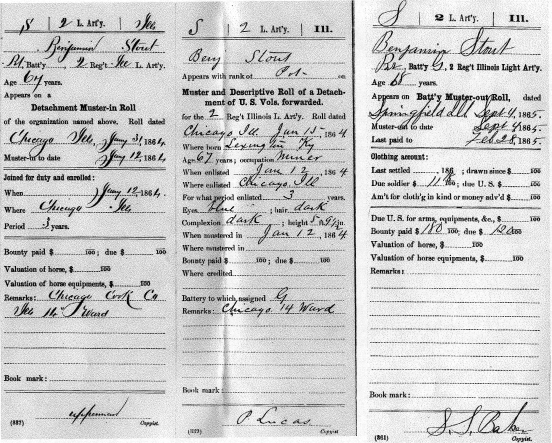 S | 2 | L. Art'y. | Ills
Benjamin Stout
Pt, Batt'y , 2 Reg't Ills L. Art'y.
Age 67 years.
Appears on a
Detachment Muster-in Roll
of the organization named above. Roll dated
Chicago Ills, Jany 31, 1864.
Muster-in to date Jany 12, 1864.
Joined for duty and enrolled:
When Jany 12, 1864.
Where Chicago Ills
Period 3 years.
Bounty paid $ 100; due $ 100
Valuation of horse, $ 100
Valuation of horse equipments, $ 100
Remarks: Chicago Cook Co
Ills 14 Ward
Book mark:
(337) Copyist.
S | 2 | L. Art'y. | Ill.
Benj Stout
Appears with rank of Pvt. on
Muster and Descriptive Roll of a Detach-
ment of U. S. Vols. forwarded.
for the 2 Reg't Illinois L. Art'y. Roll dated
Chicago, Ill. Jan 15, 1864
Where born Lexington Ky
Age 67 years; occupation Miner
When enlisted Jan 12, 1864
Where enlisted Chicago, Ill
For what period enlisted 3 years.
Eyes blue; hair dark
Complexion dark; height 5 ft. in.
When mustered in Jan 12, 1864
Where mustered in
Bounty paid $ 100; due $ 100
Where credited
Battery to which assigned G
Remarks: Chicago 14 Ward
Book mark:
P Lucas
Copyist.
S | 2 | L. Art'y. | Ill.
Benjamin Stout
Batt'y G, 2 Reg't Illinois Light Art'y.
Age 68 years.
Appears on Batt'y Muster-out Roll, dated
Springfield Ill Sept 4, 1865.
Muster-out to date Sept 4, 1865.
Last paid to Feb 28, 1865.
Clothing account:
Last settled , 186 ; drawn since $ 100
Due soldier $ 100; due U. S. $ 100
Am't for cloth'g in kind or money adv'd $ 100
Due U. S. for arms, equipments, &c., $ 100
Bounty paid $ 180 100; due $ 120 100
Valuation of horse, $ 100
Valuation of horse equipments, $ 100
Remarks:
Book mark:
S. S. Baker
(361) Copyist.